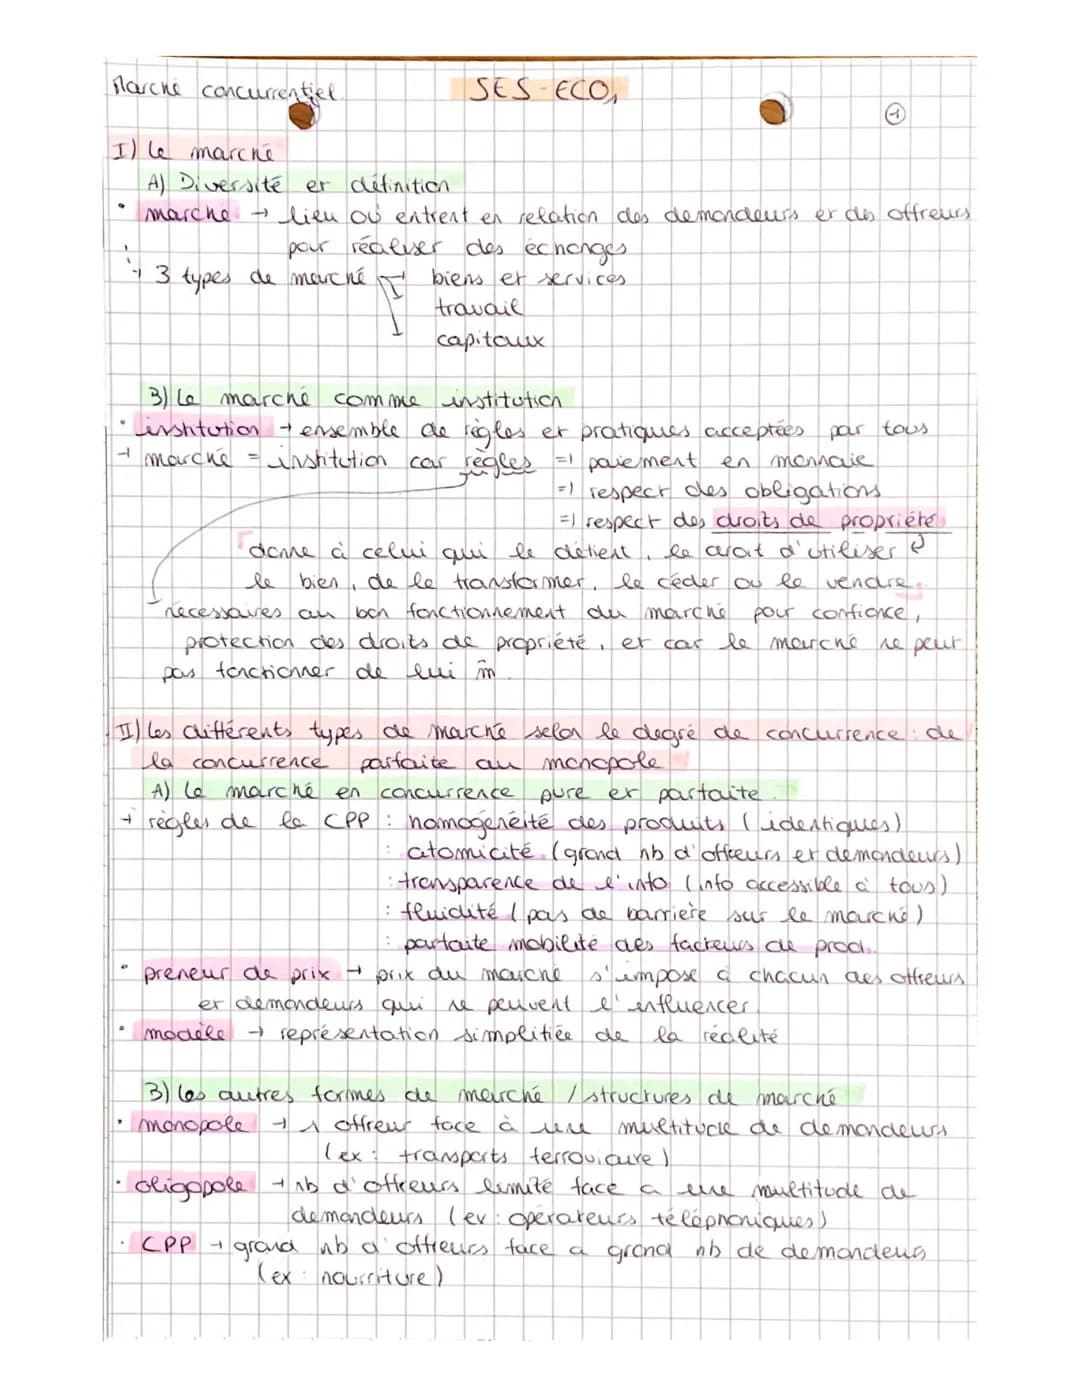 Marché concurrentiel
SES-ECO1
1
I) Le marché
A) Diversité et définition
• marché → lieu où entrent en relation des demandeurs et des offreurs
pour réaliser des échanges
→ 3 types de marché → biens et services
travail
capitaux
B) Le marché comme institution
• institution → ensemble de règles et pratiques acceptées par tous
→ marché = institution car règles => paiement en monnaie
=> respect des obligations
=> respect des droits de propriété
donne à celui qui le détient, le droit d'utiliser
le bien, de le transformer, le céder ou le vendre
nécessaires au bon fonctionnement du marché pour confiance,
protection des droits de propriété, et car le marché ne peut
pas fonctionner de lui m̂
II) Les différents types de marché selon le degré de concurrence : de
la concurrence parfaite au monopole
A) Le marché en concurrence pure et parfaite.
→ règles de la CPP : homogénéité des produits (identiques)
: atomicité (grand nb d'offreurs et demandeurs)
: transparence de l'info (info accessible à tous)
: fluidité (pas de barrière sur le marché)
: parfaite mobilité des facteurs de prod.
• preneur de prix → prix du marché s'impose à chacun des offreurs
et demandeurs qui ne peuvent l'influencer.
• modèle → représentation simplifiée de la réalité
B) Les autres formes de marché / structures de marché
• monopole → 1 offreur face à une multitude de demandeurs
(ex : transports ferroviaire)
• oligopole → nb d'offreurs limité face à une multitude de
demandeurs (ex : opérateurs téléphoniques)
• CPP → grand nb d'offreurs face à grand nb de demandeurs
(ex : nourriture)